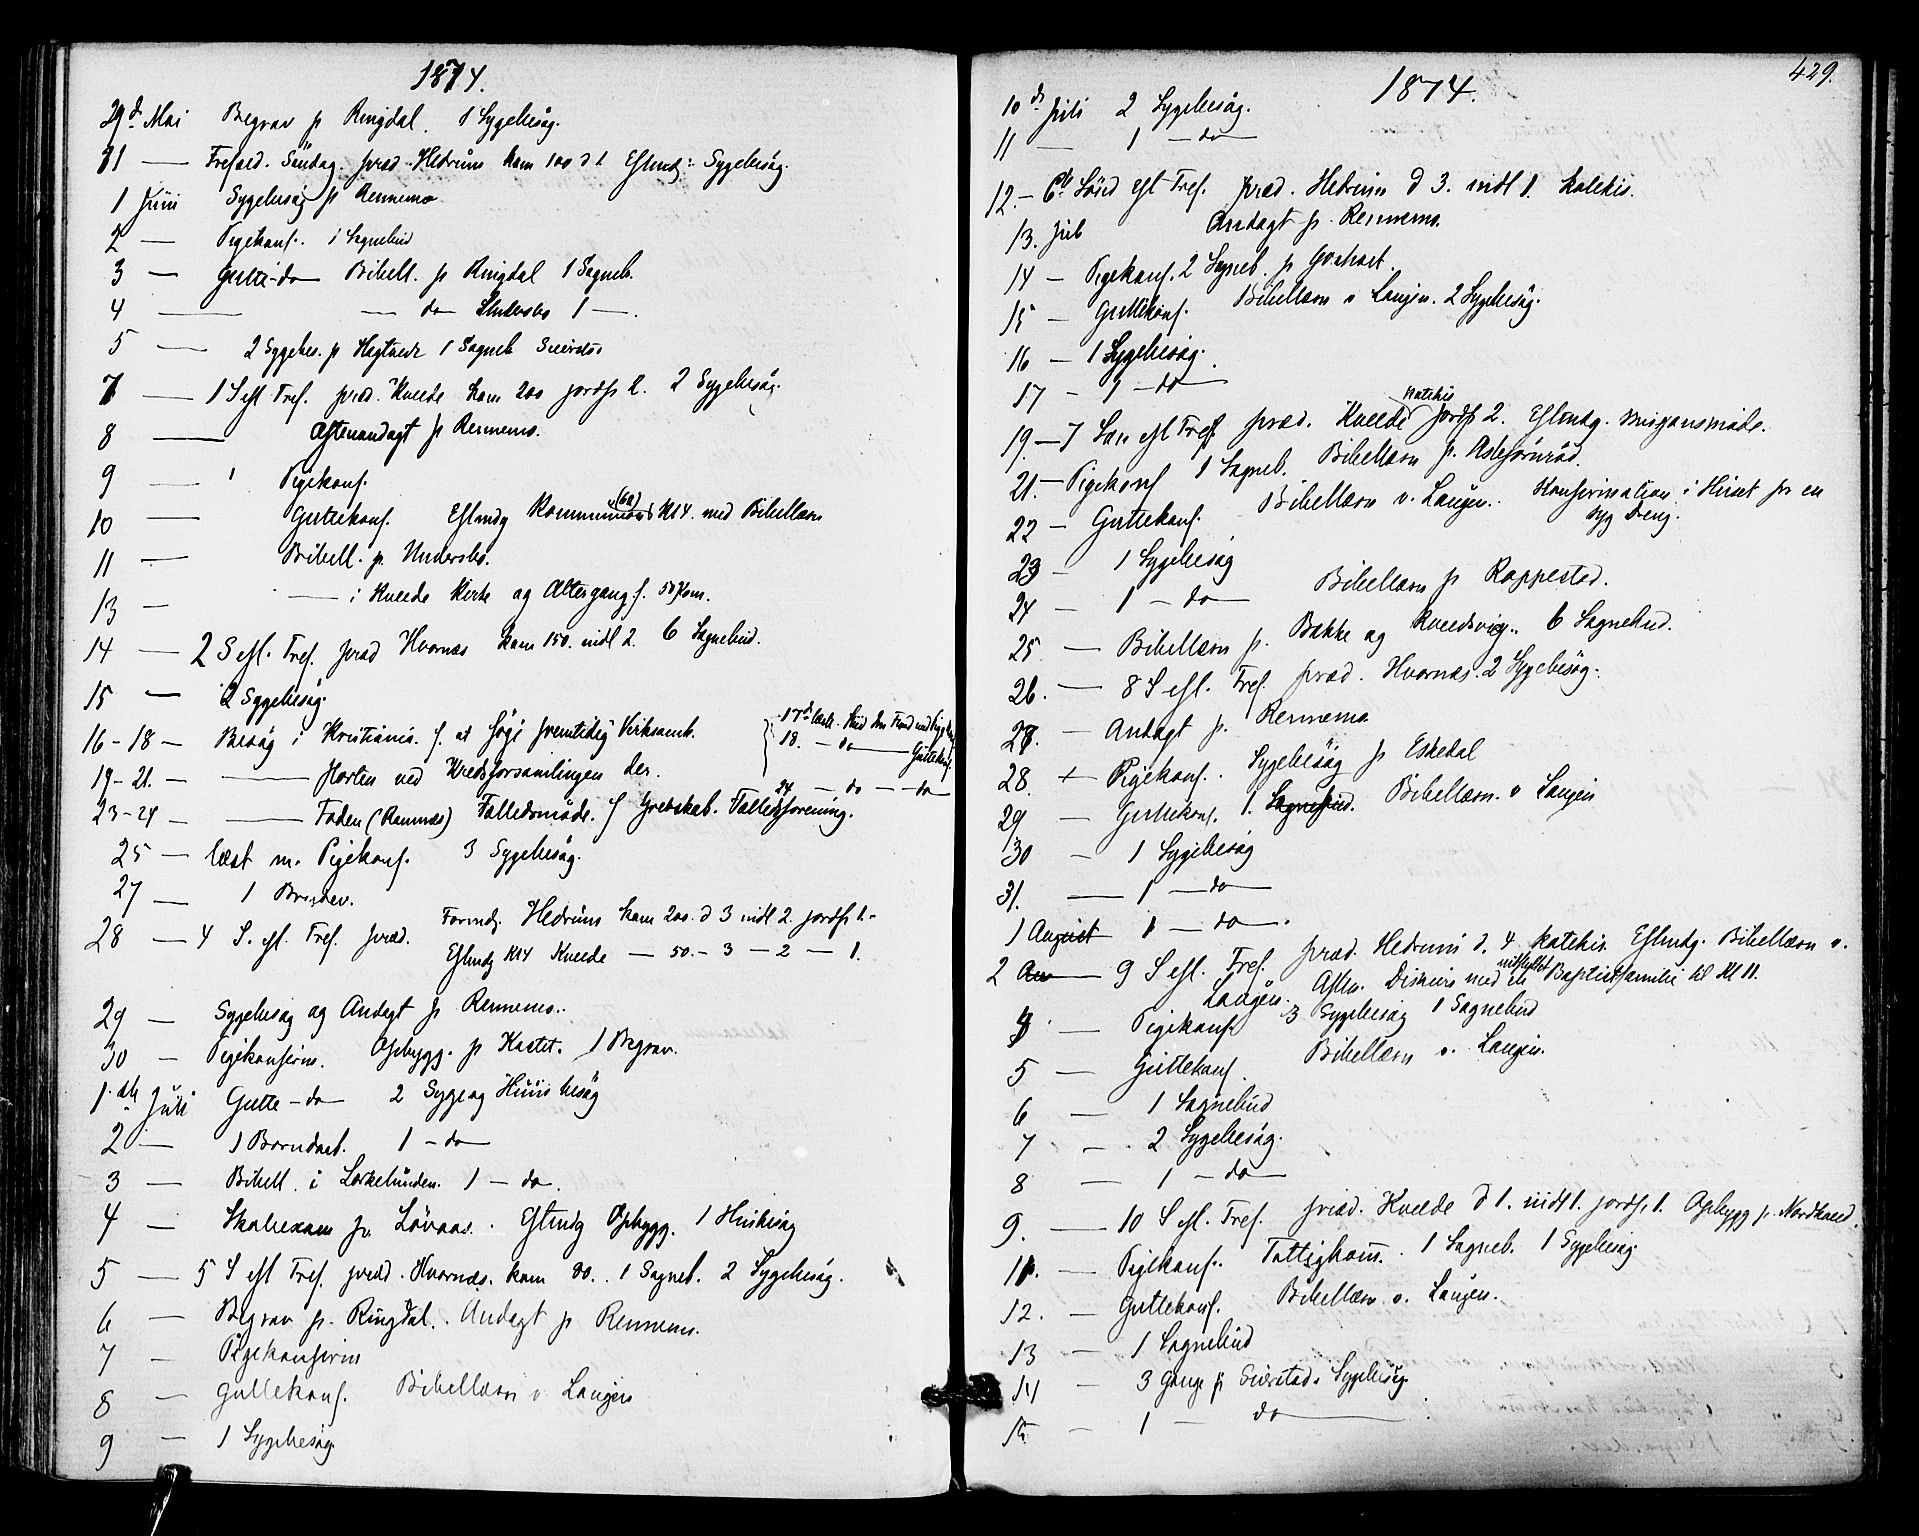 1874.
29d Mai Begrav p Ringdal. 1 Sygebesøg.
31 — Trefold. Söndag. præd. Hedrum kom 100 d 1. Eftmdg: Sygebesøg.
1 Juni Sygebesøg p Rennemo
2 — Pigekonf. 1 Sognebud
3 — Gutte-do Bibell. p Ringdal 1 Sogneb.
4 — — do 1 —.
5 — 2 Sygebes. p 1 Sogneb
7 — 1 S eft Tref. præd. Kvelde kom 200 jordf 2. 2 Sygebesøg.
8 — Aftenandagt p Rennemo.
9 — Pigekonf.
10 — Guttekonf. Eftmdg (60) Kl 4. med Bibellæsn
11 — Bibell. p. Undersbo.
13 — — i Kvelde Kirke og Altergang f. 50 Kom.
14 — 2 S eft. Tref. præd Hvarnes kom 150. indl 2. 6 Sognebud.
15 — 2 Sygebesøg.
16-18 — Besøg i Kristiania. f. at fremtidig Virksomh.
18. — do — Guttekonf.
19-21. — — Horten ved Kredsforsamlingen der.
24 — do — do
23-24 — — Foden (Ramnæs) Fællesmöde. f Grevskab. Fællesforening.
25 — læst m. Pigekonf. 3 Sygebesøg.
27 — 1
28 — 4 S. eft. Tref. præd. Formdg. Hedrum kom 200. d 3 indl 2. jordf 1.
Eftmdg Kl 4 Kvelde — 50. — 3 — 2 — 1.
29 — Sygebesøg og Andagt p Rennemo.
30 — Pigekonfirm. Opbygg. p Kastet. 1 Begrav.
1.ste Juli Gutte — do 2 Syge og Huusbesøg
2 — 1 Barndaab. 1 — do
3 — Bibell. i 1 — do.
4 — Skoleexam p. Lövaas. Eftmdg Opbygg. 1 Husbesøg
5 — 5 S eft Tref. præd. Hvarnes. kom 80. 1 Sogneb. 2 Sygebesøg.
6 — Begrav p. Ringdal. Andagt p Rennemo.
7 — Pigekonfirm
8 — Guttekonf. Bibellæsn v. Laugen
9 — 1 Sygebesøg.
429.
1874.
10de Juli 2 Sygebesøg.
11 — 1 — do —
12. — 6te Sönd eft Tref. præd. Hedrum d 3. indl 1. katekis.
13. Juli Andagt p. Rennemo.
14 — Pigekonf. 2 Sogneb. p
15 — Guttekonf. Bibellæsn v Laugen. 2 Sygebesøg.
16 — 1 Sygebesøg.
17 — 1 — do
katekis
19. — 7 Sön eft Tref præd. Kvelde jordf 2. Eftmdg. Misjonsmöde.
21. — Pigekonf 1 Sogneb. Bibellæsn p.
22 — Guttekonf. Bibellæsn v. Laugen. Konfirmation i Huset for en
syg Dreng.
23 — 1 Sygebesøg
24 — 1 — do — Bibellæsn p Rappestad.
25 — Bibellæsn p. Bakke og Kveldsvig. 6 Sognebud.
26. — 8 S eft. Tref. præd. Hvarnes. 2 Sygebesøg.
27. — Andagt p. Rennemo
28. — Pigekonf. Sygebesøg p Eskedal
29 — Guttekonf. 1. Sognebud. Bibellæsn. v Laugen
30 — 1 Sygebesøg
31. — 1 — do
1 August 1 — do —.
2 — 9 S eft. Tref. præd. Hedrum d. 4 katekis. Eftmdg. Bibellæsn v.
Laugen. Aften. Diskurs med en indflyttet Baptistfamilie til Kl 11.
4. — Pigekonf. 3 Sygebesøg 1 Sognebud
5 — Guttekonf. Bibellæsn v. Laugen.
6 — 1 Sognebud
7 — 2 Sygebesøg.
8 — 1 — do
9. — 10 S eft. Tref. præd. Kvelde d 1. indl 1. jordf. 1. Opbygg p. Nordkveld.
11. — Pigekonf. Fattigkom. 1 Sogneb. 1 Sygebesøg.
12. — Guttekonf. Bibellæsn v. Laugen.
13 — 1 Sognebud
14 — 3 Gange p Sygebesøg.
15 — 1 — do —